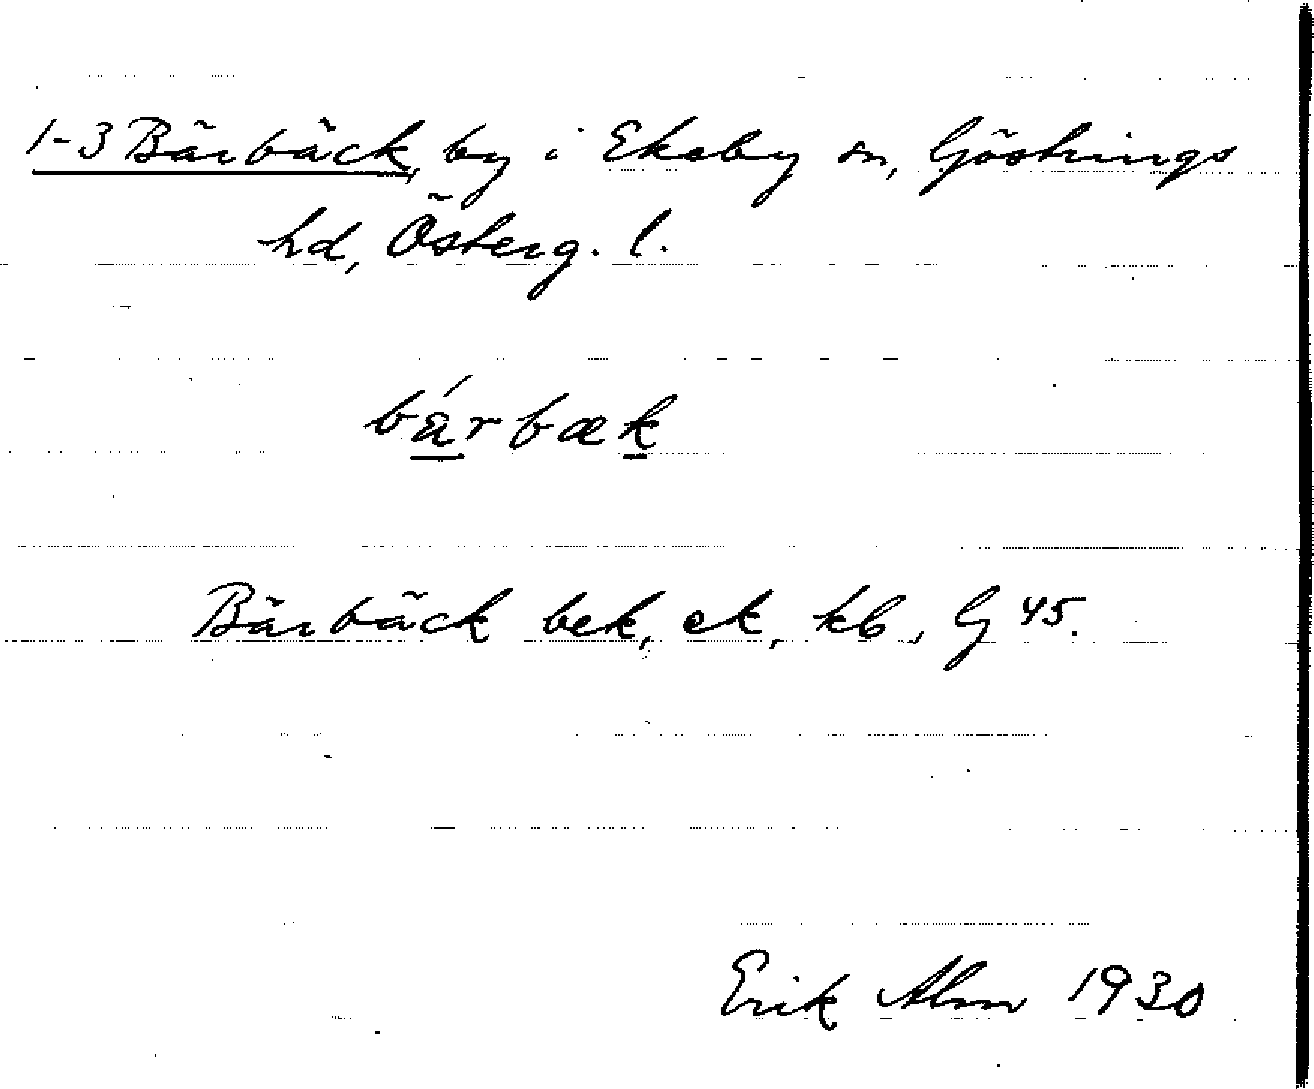 1-3 Bärbäck, by i Ekeby sn, Göstrings
hd, Österg. l.
bá̱rbæḵ
Bärbäck bek, ek, kb, G 45.
Erik Alm 1930